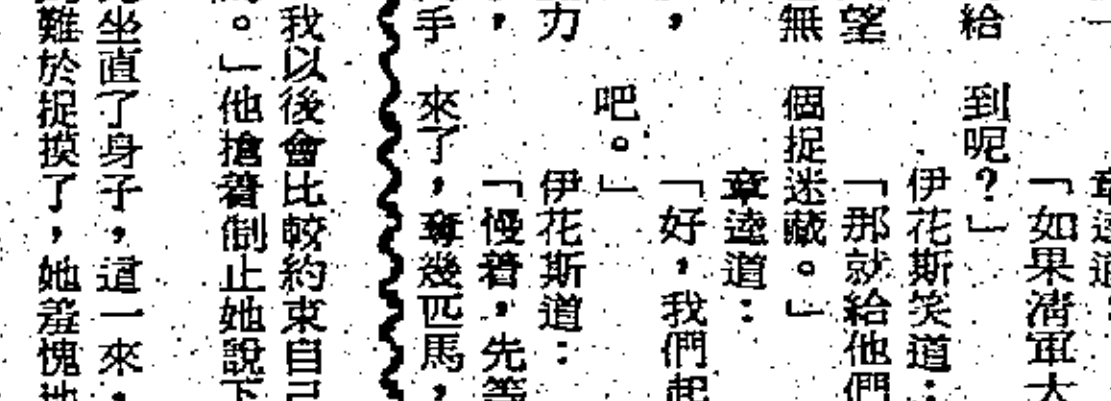 章逵道：
「如果清軍大
給 到呢？」
伊花斯笑道：
望 「那就給他們
無 個捉迷藏。」
章逵道：
， 「好，我們起
吧。」
力 伊花斯道：
， 「慢着，先等
手 來了，奪幾匹馬，
我以後會比較約束自己
。」他搶着制止她說下
坐直了身子，這一來，
難於捉摸了，她羞愧地